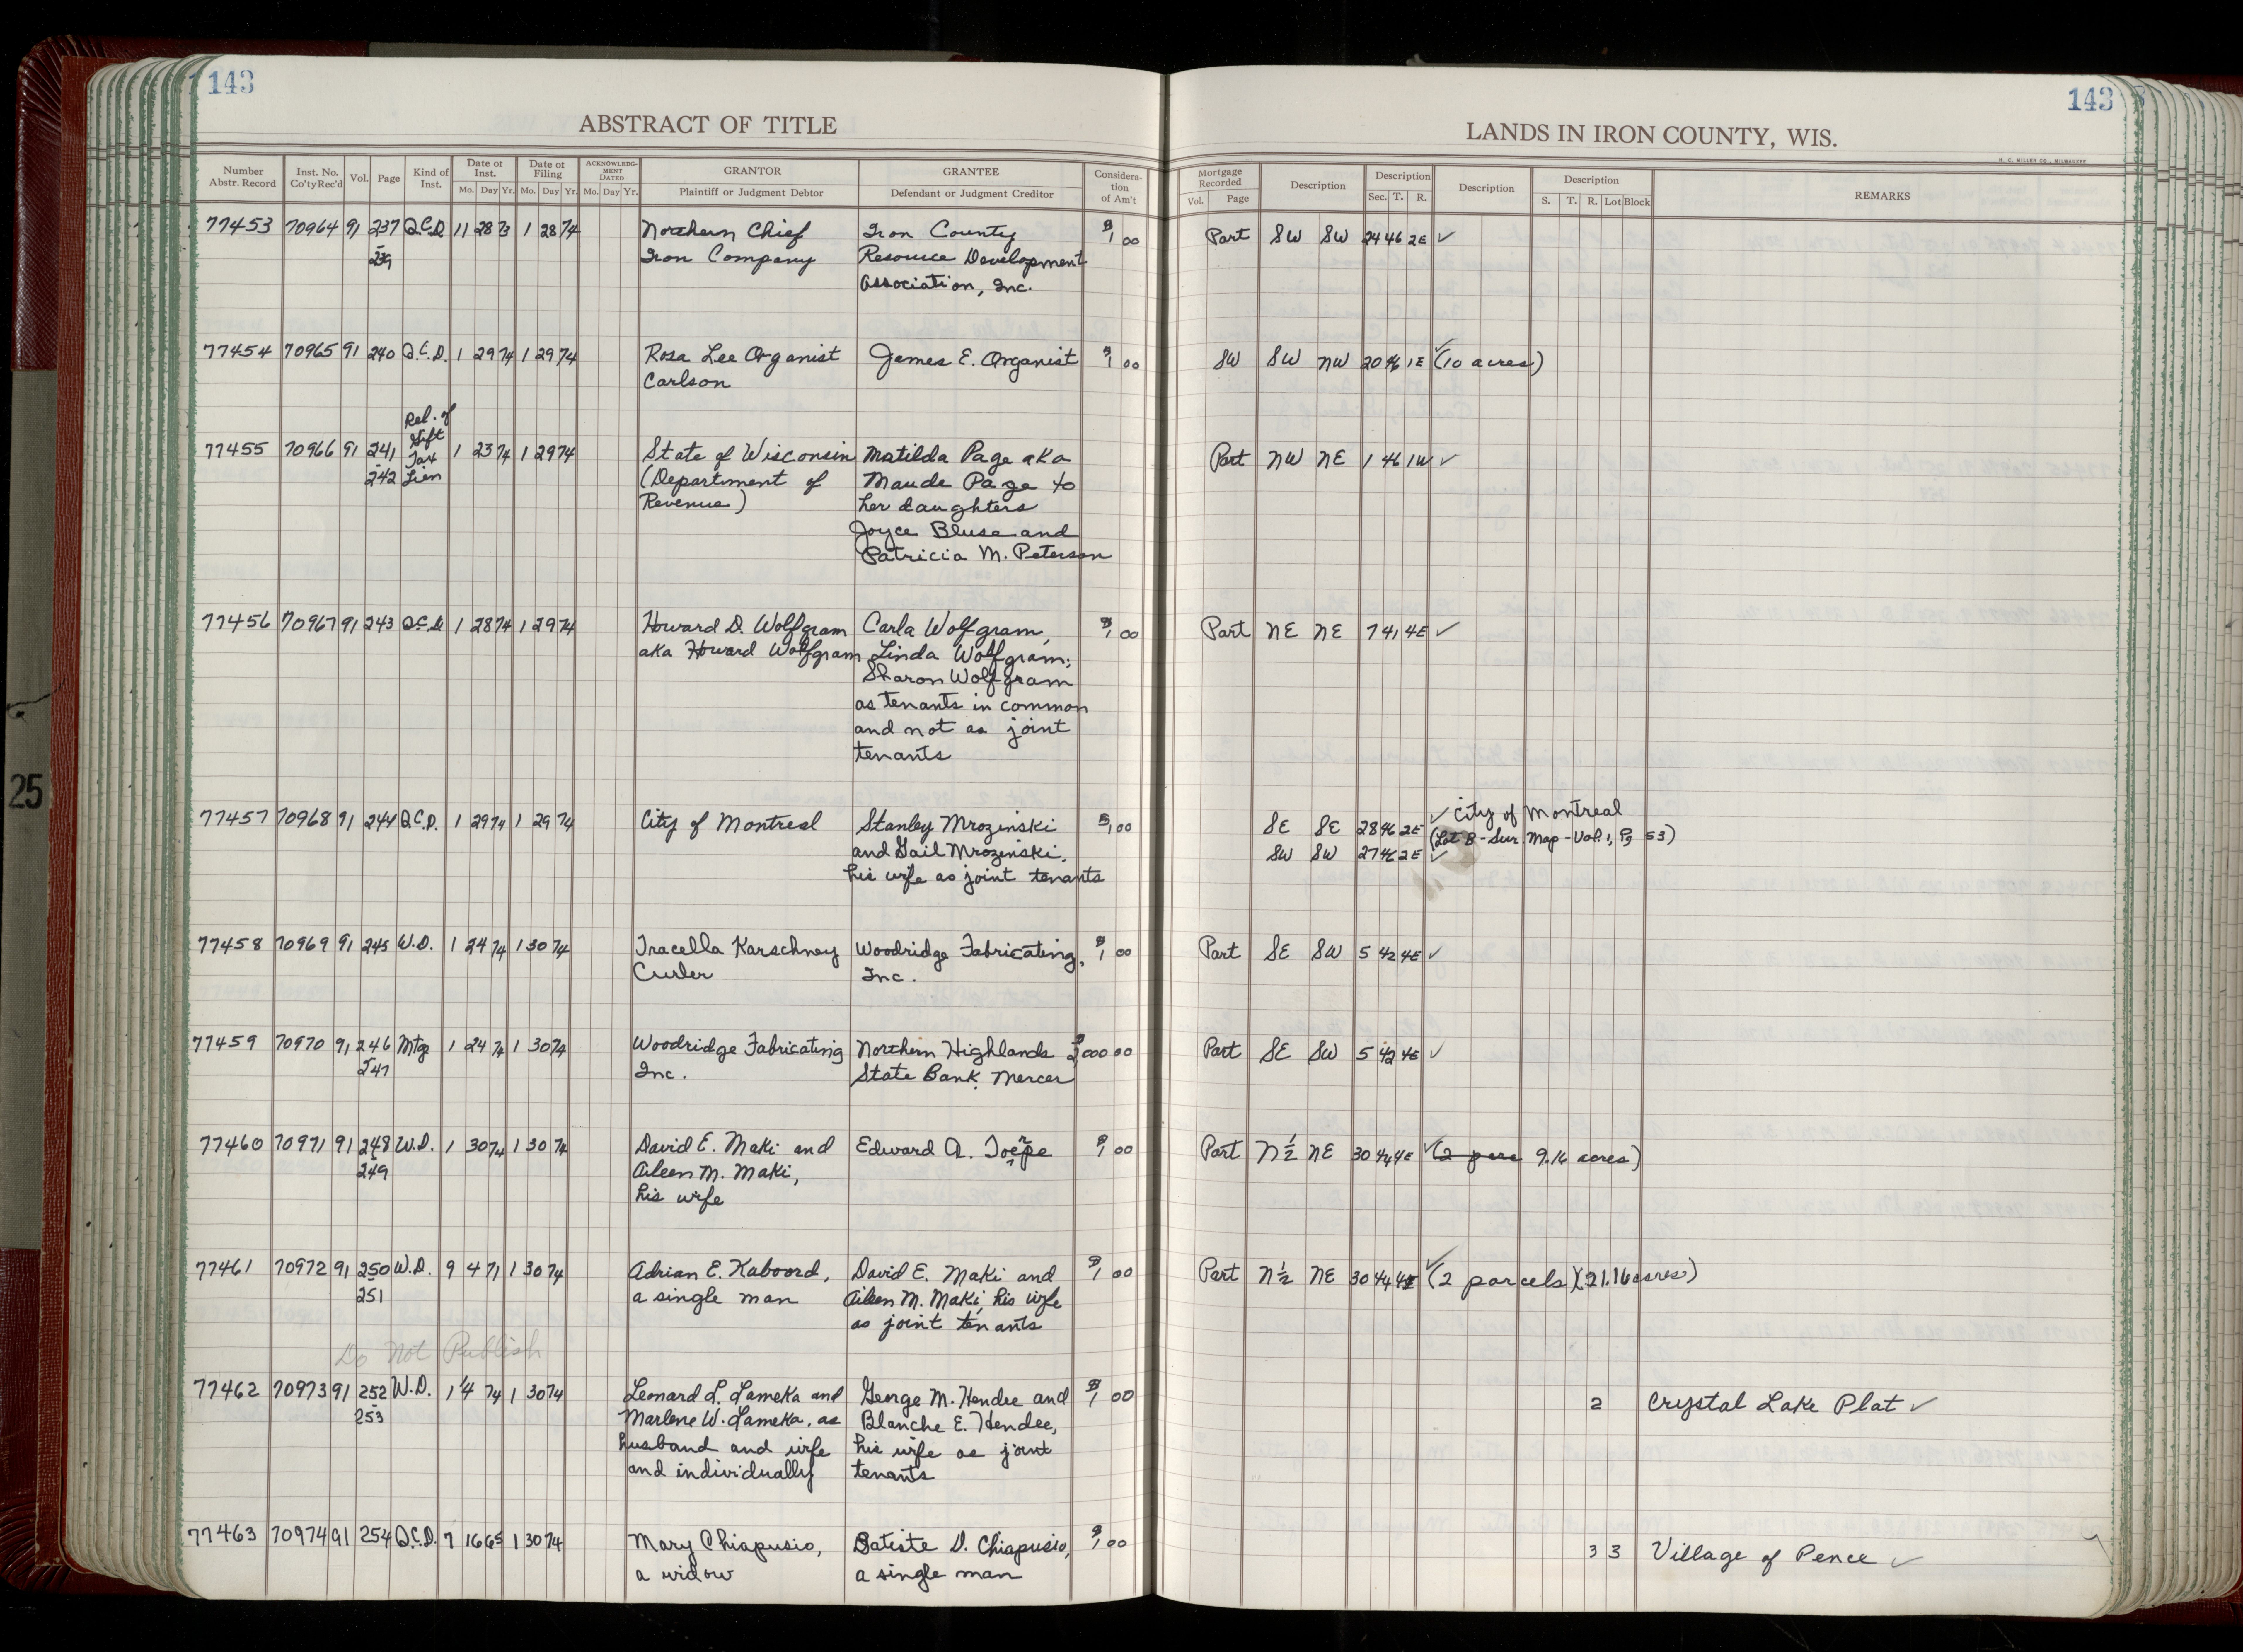 143
ABSTRACT OF TITLE
Number Abstr. Record | Inst. No. Co'ty Rec'd | Vol. | Page | Kind of Inst. | Date of Inst. Mo. Day Yr. | Date of Filing Mo. Day Yr. | ACKNOWLEDG-MENT DATED Mo. Day Yr. | GRANTOR Plaintiff or Judgment Debtor | GRANTEE Defendant or Judgment Creditor | Considera-tion of Am't
77453 70964 91 237 Q.C.D. 11 28 73 1 28 74 Northern Chief Iron County $1 00
- 239 Iron Company Resource Development
Association, Inc.
77454 70965 91 240 Q.C.D. 1 29 74 1 29 74 Rosa Lee Organist James E. Organist $1 00
Carlson
Rel. of
Gift
77455 70966 91 241 Tax 1 23 74 1 29 74 State of Wisconsin Matilda Page aka
- 242 Lien (Department of Maude Page to
Revenue) her daughters
Joyce Bluse and
Patricia M. Peterson
77456 70967 91 243 Q.C.D. 1 28 74 1 29 74 Howard D. Wolfgram Carla Wolfgram, $1 00
aka Howard Wolfgram Linda Wolfgram;
Sharon Wolfgram
as tenants in common
and not as joint
tenants
77457 70968 91 244 Q.C.D. 1 29 74 1 29 74 City of Montreal Stanley Mrozinski $1 00
and Gail Mrozinski,
his wife as joint tenants
77458 70969 91 245 W.D. 1 24 74 1 30 74 Tracella Karschney Woodridge Fabricating, $1 00
Curler Inc.
77459 70970 91 246 Mtg 1 24 74 1 30 74 Woodridge Fabricating Northern Highlands 000 00
- 247 Inc. State Bank, Mercer
77460 70971 91 248 W.D. 1 30 74 1 30 74 David E. Maki and Edward A. Toerpe $1 00
- 249 Aileen M. Maki,
his wife
77461 70972 91 250 W.D. 9 4 71 1 30 74 Adrian E. Kaboord, David E. Maki and $1 00
- 251 a single man Aileen M. Maki, his wife
as joint tenants
Do Not Publish
77462 70973 91 252 W.D. 1 4 74 1 30 74 Leonard L. Lameka and George M. Hendee and $1 00
- 253 Marlene W. Lameka, as Blanche E. Hendee,
husband and wife his wife as joint
and individually tenants
77463 70974 91 254 Q.C.D. 7 16 65 1 30 74 Mary Chiapusio, Batiste D. Chiapusio, $1 00
a widow a single man
25
143
LANDS IN IRON COUNTY, WIS.
H. C. MILLER CO., MILWAUKEE
Mortgage Recorded Vol. Page | Description | Description Sec. T. R. | Description | Description S. T. R. Lot Block | REMARKS
Part SW SW 24 46 2E ✓
SW SW NW 20 46 1E ✓ (10 acres)
Part NW NE 1 46 1W ✓
Part NE NE 7 41 4E ✓
✓ City of Montreal
SE SE 28 46 2E (Lot B - Sur. Map - Vol. 1, Pg 53)
SW SW 27 46 2E ✓
Part SE SW 5 42 4E ✓
Part SE SW 5 42 4E ✓
Part N½ NE 30 44 4E ✓ (2 9.16 acres)
Part N½ NE 30 44 4E ✓ (2 parcels)(21.16 acres)
2 Crystal Lake Plat ✓
3 3 Village of Pence ✓